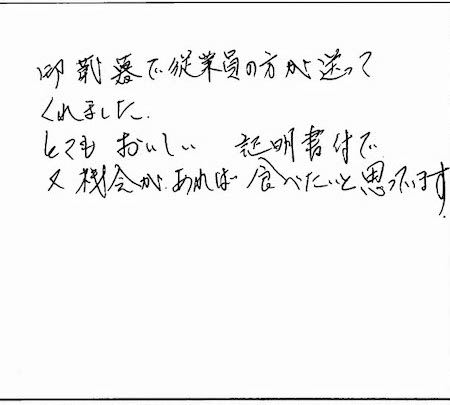 で従業員の方が送って
くれました.
とても おいしい 証明書付で
又機会が.あれば食べたいと思っています.